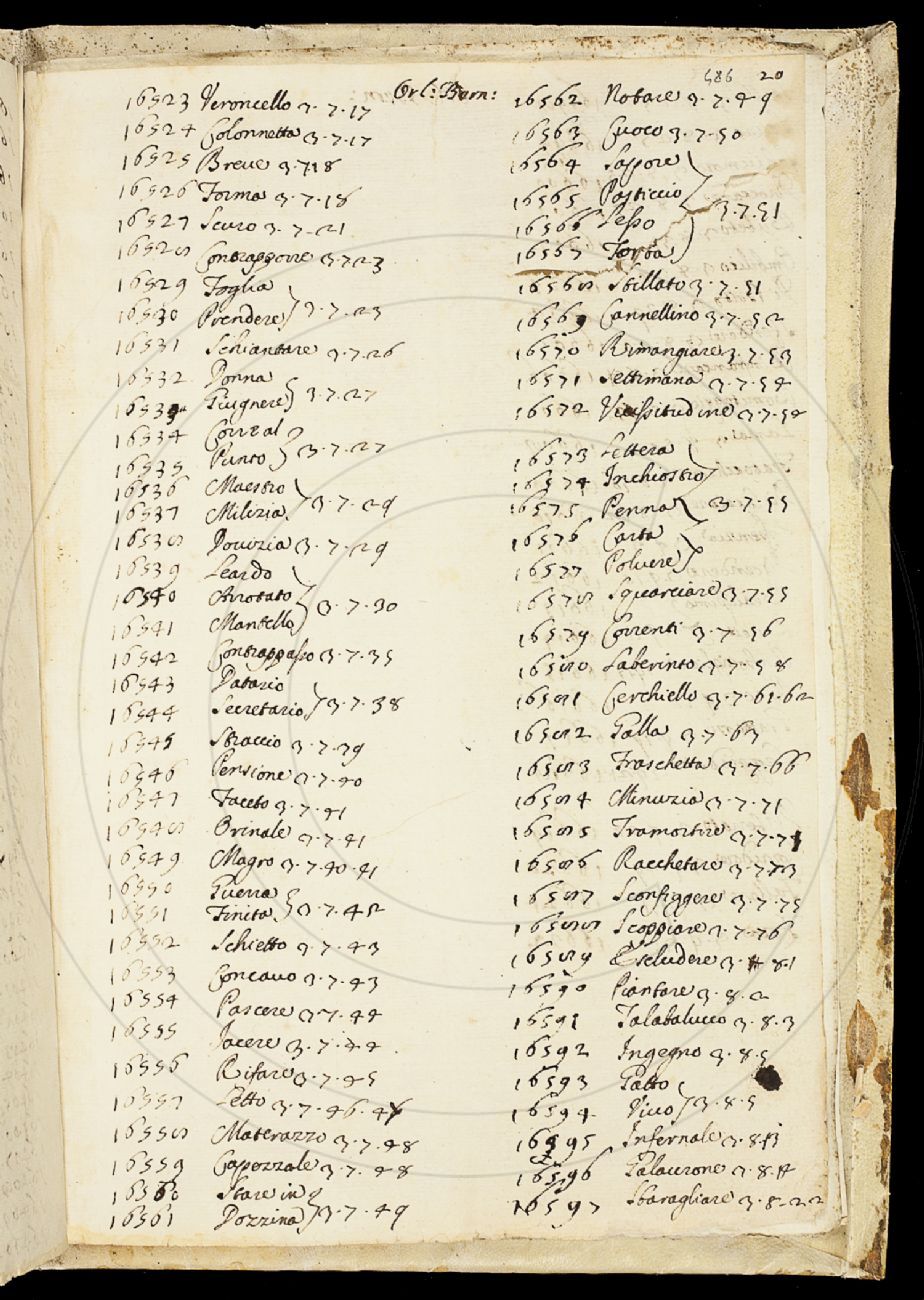 486 20
Orl: Bern:
16523 Veroncello 3.7.17
16524 Colonnetta 3.7.17
16525 Breue 3.7.18
16526 Forma 3.7.18
16527 Scuro 3.7.21
16528 Contrapporre 3.7.23
16529 Foglia
16530 Prendere 3.7.23
16531 Schiantare 3.7.26
16532 Donna
16533 Giugnere 3.7.27
16534 Corral
16535 Punto 3.7.27
16536 Maestro
16537 Milizia 3.7.29
16538 Douizia 3.7.29
16539 Leardo
16540 Arrotato 3.7.30
16541 Mantello
16542 Contrappasso 3.7.35
16543 Datario
16544 Secretario 3.7.38
16545 Straccio 3.7.39
16546 Pensione 3.7.40
16547 Faceto 3.7.41
16548 Orinale 3.7.41
16549 Magro 3.7.40.41
16550 Guerra
16551 Finita 3.7.42
16552 Schietto 3.7.43
16553 Concauo 3.7.43
16554 Pascere 3.7.44
16555 Iacere 3.7.44
16556 Rifare 3.7.45
16557 Letto 3.7.46.47
16558 Materazzo 3.7.48
16559 Capezzale 3.7.48
16560 Stare in
16561 Dozzina 3.7.49
16562 Notare 3.7.49
16563 Cuoco 3.7.50
16564 Sappore
16565 Pasticcio
16566 Lesso 3.7.51
16567 Torta
16568 Stillato 3.7.51
16569 Cannellino 3.7.52
16570 Rimangiare 3.7.53
16571 Settimana 3.7.54
16572 Vicissitudine 3.7.54
16573 Lettera
16574 Inchiostro
16575 Penna 3.7.55
16576 Carta
16577 Poluere
16578 Squarciare 3.7.55
16579 Correnti 3.7.56
16580 Laberinto 3.7.58
16581 Cerchiello 3.7.61.62
16582 Galla 3.7.63
16583 Fraschetta 3.7.66
16584 Minuzia 3.7.71
16585 Tramortire 3.7.71
16586 Racchetare 3.7.73
16587 Sconfiggere 3.7.75
16588 Scoppiare 3.7.76
16589 Escludere 3.8.1
16590 Piantare 3.8.2
16591 Talabalucco 3.8.3
16592 Ingegno 3.8.5
16593 Gatto
16594 Viuo 3.8.5
16595 Infernale 3.8.13
16596 Galauerone 3.8.14
16597 Sbaragliare 3.8.22